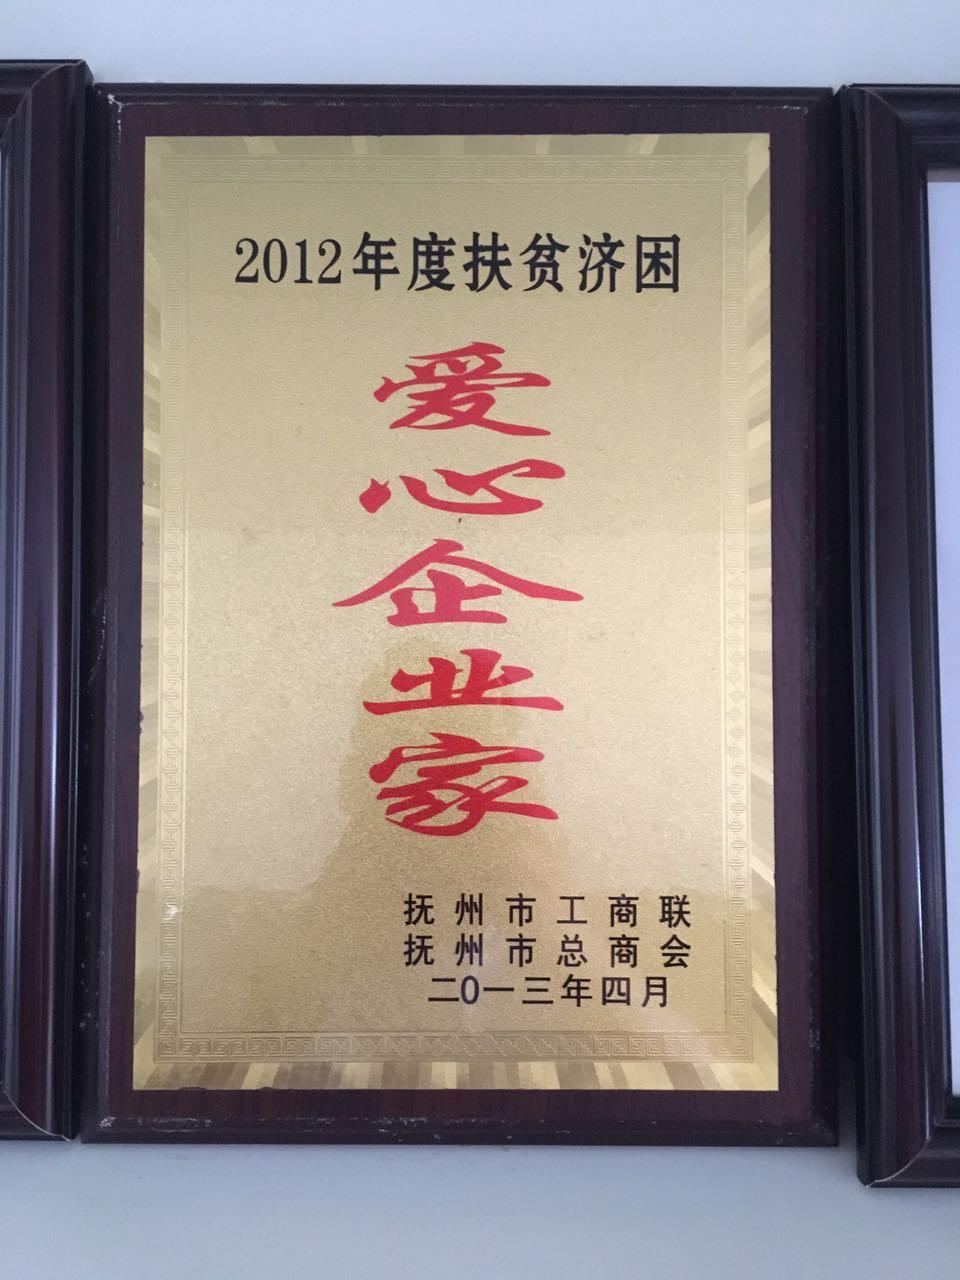 2012年度扶贫济困
爱心企业家
抚州市工商联
抚州市总商会
二0一三年四月